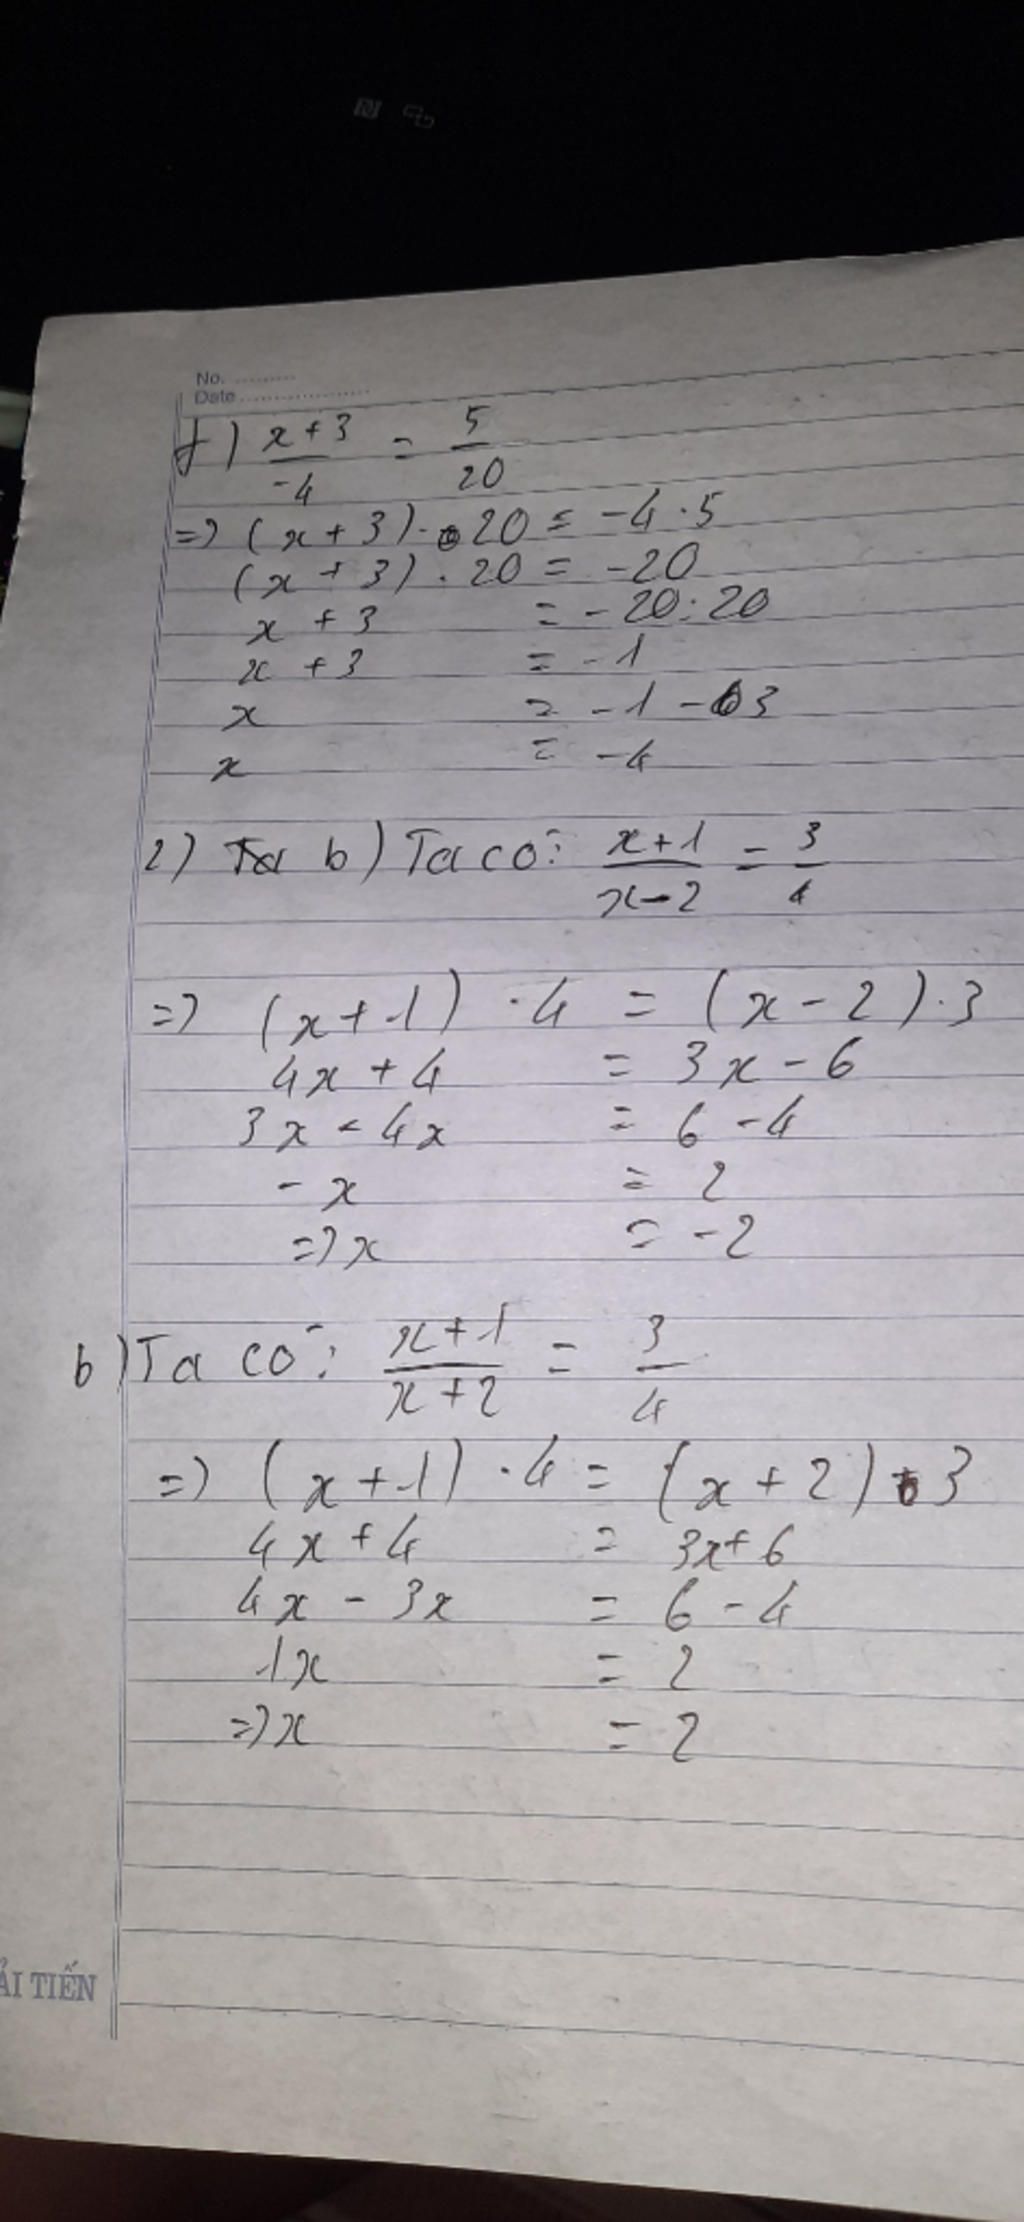 No.
Date
f) x+3/-4 = 5/20
=> (x+3).20 = -4.5
(x+3).20 = -20
x+3 = -20:20
x+3 = -1
x = -1-3
x = -4
2) Ta b) Ta có: x+1/x-2 = 3/4
=> (x+1).4 = (x-2).3
4x+4 = 3x-6
3x-4x = 6-4
-x = 2
=> x = -2
b) Ta có: x+1/x+2 = 3/4
=> (x+1).4 = (x+2).3
4x+4 = 3x+6
4x-3x = 6-4
1x = 2
=> x = 2
ẢI TIẾN